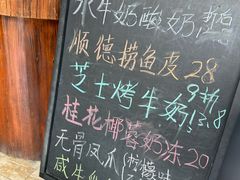 水牛奶酸奶
顺德捞鱼皮28
芝士烤牛奶
桂花椰蓉奶冻20
无骨凤爪(柠檬味
咸